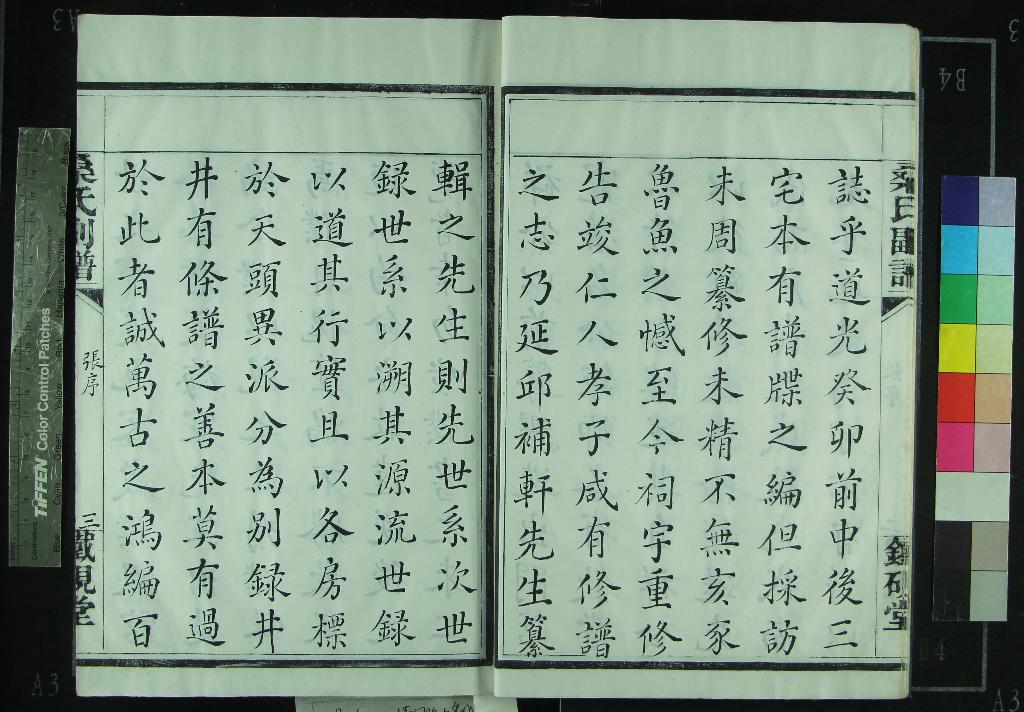 誌乎道光癸卯前中後三
宅本有譜牒之編但採訪
未周纂修未精不無亥豕
魯魚之憾至今祠宇重修
告竣仁人孝子咸有修譜
之志乃延邱補軒先生纂
輯之先生則先世系次世
録世系以溯其源流世録
以道其行實且以各房標
於天頭異派分為别録井
井有條譜之善本莫有過
於此者誠萬古之鴻編百
張序
三
TIFFEN Color Control Patches
B4
A3
A3